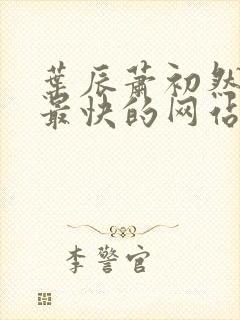 葉辰蕭初然
最快的网站
李警官